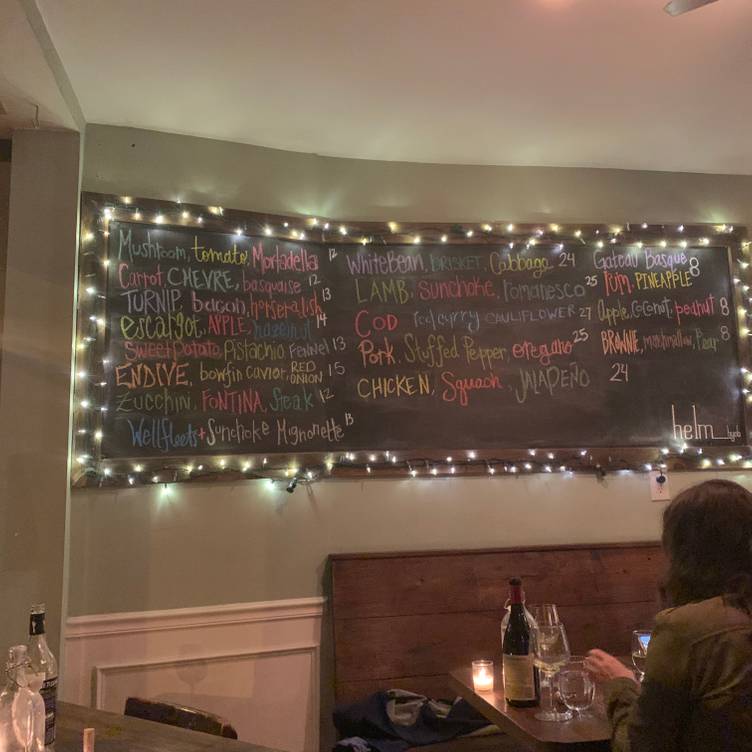 Mushroom, tomato, Mortadella 12
Carrot, CHEVRE, basquaise 12
TURNIP, bacon, horseradish 13
escargot, APPLE, hazelnut 14
Sweet Potato, Pistachio Fennel 13
ENDIVE, bowfin caviar, RED ONION 15
Zucchini, FONTINA, Steak 12
Wellfleets + Sunchoke Mignonette 13
White Bean, BRISKET, Cabbage 24
LAMB, Sunchoke, romanesco 25
COD red curry CAULIFLOWER 27
Pork, Stuffed Pepper, oregano 25
CHICKEN, Squash, JALAPEÑO 24
Gateau Basque
rum, PINEAPPLE 8
Apple, Coconut, peanut 8
BROWNIE, marshmallow, Pear 8
helm